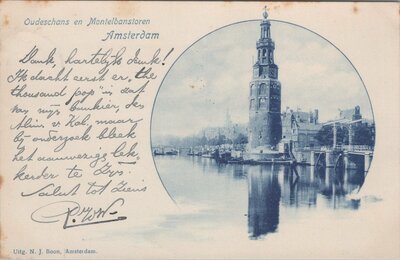 Oudeschans en Montelbanstoren
Amsterdam
Dank, hartelijk dank!
Ik dacht eerst er, the
thousand pop in zat
van mijn bankier, des
Kleins v. Kol, maar
bij onderzoek bleek
het aanwezig lek,
kerder te zijn.
Salut tot ziens
Uitg. N. J. Boon, Amsterdam.